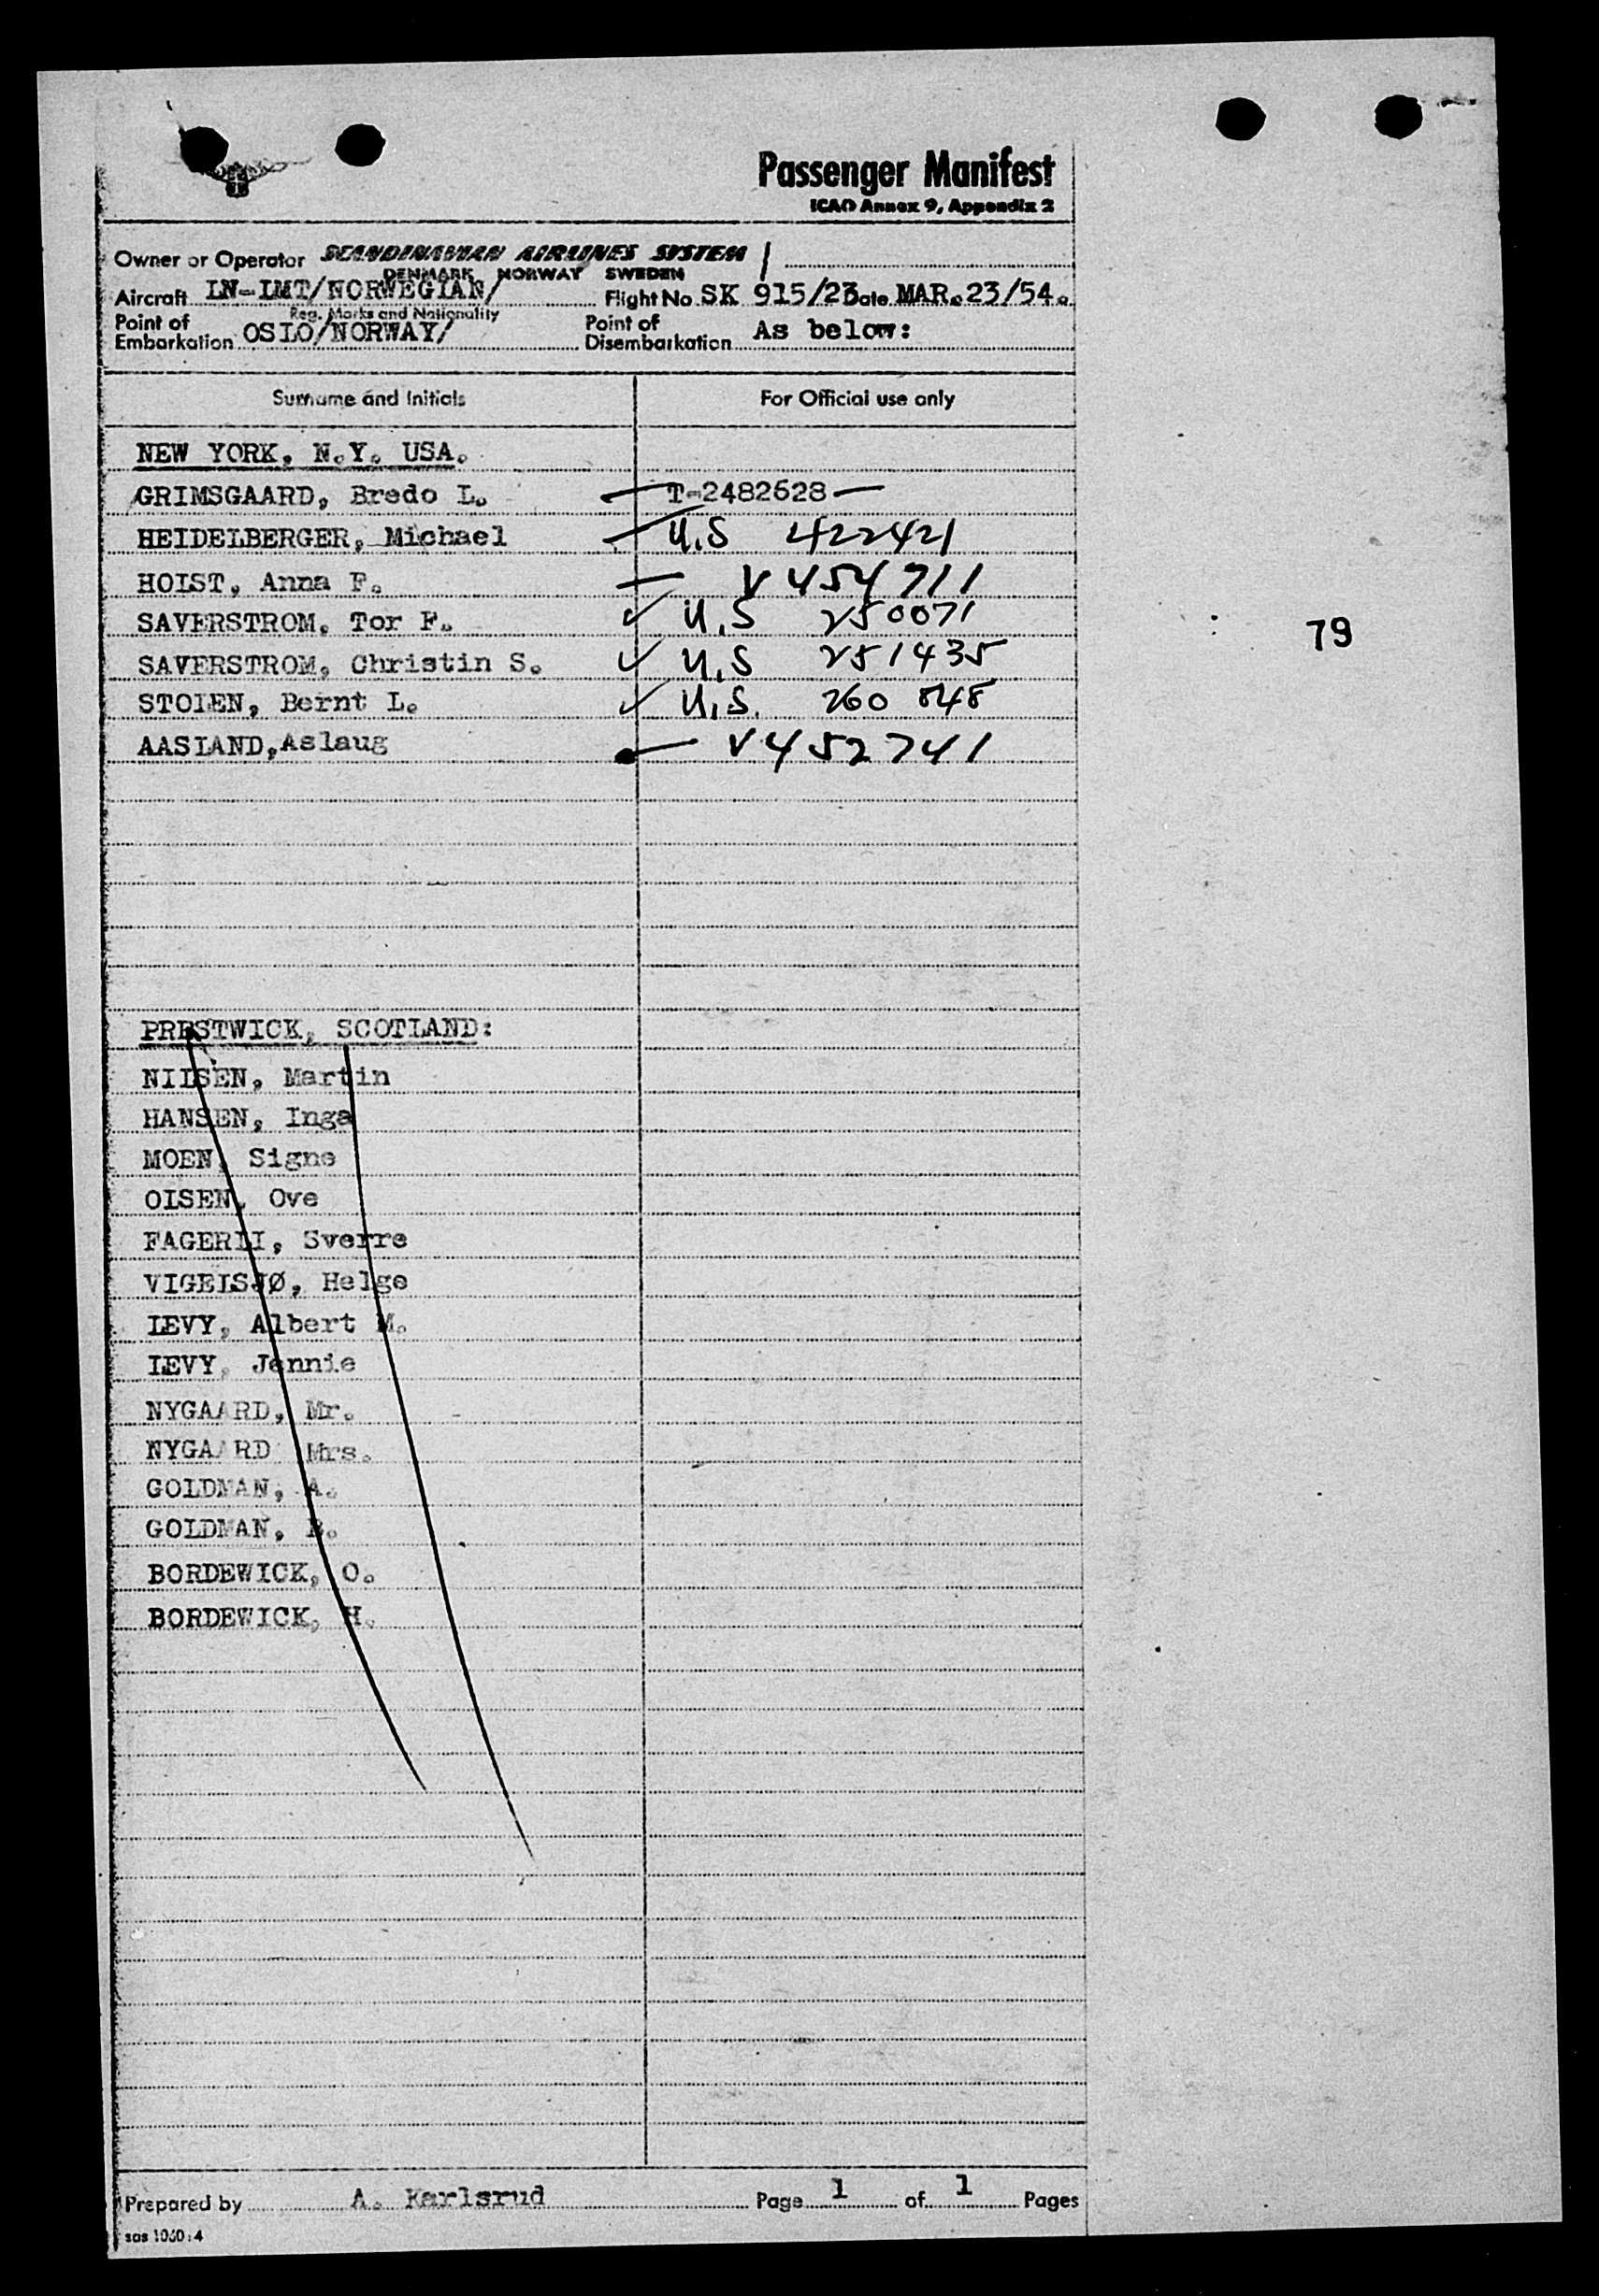 Passenger Manifest
ICAO Annex 9, Appendix 2
Owner or Operator SCANDINAVIAN AIRLINES SYSTEM
DENMARK NORWAY SWEDEN
Aircraft LN-LMT/NORWEGIAN/ Flight No. SK 915/23 Date MAR. 23/54.
Reg. Marks and Nationality
Point of Embarkation OSLO/NORWAY/ Point of Disembarkation As below:
Surname and Initials For Official use only
NEW YORK, N.Y. USA.
GRIMSGAARD, Bredo L. T-2482628
HEIDELBERGER, Michael U.S 422421
HOLST, Anna F. V 454711
SAVERSTROM, Tor F. U.S 250071
SAVERSTROM, Christin S. U.S 251435
STOLEN, Bernt L. U.S. 260 848
AASLAND, Aslaug V452741
79
PRESTWICK, SCOTLAND:
NILSEN, Martin
HANSEN, Inga
MOEN, Signe
OLSEN, Ove
FAGERLI, Sverre
VIGELSJØ, Helge
LEVY, Albert M.
LEVY, Jennie
NYGAARD, Mr.
NYGAARD Mrs.
GOLDMAN, A.
GOLDMAN,
BORDEWICK, O.
BORDEWICK, H.
Prepared by A. Karlsrud Page 1 of 1 Pages
sas 1060:4